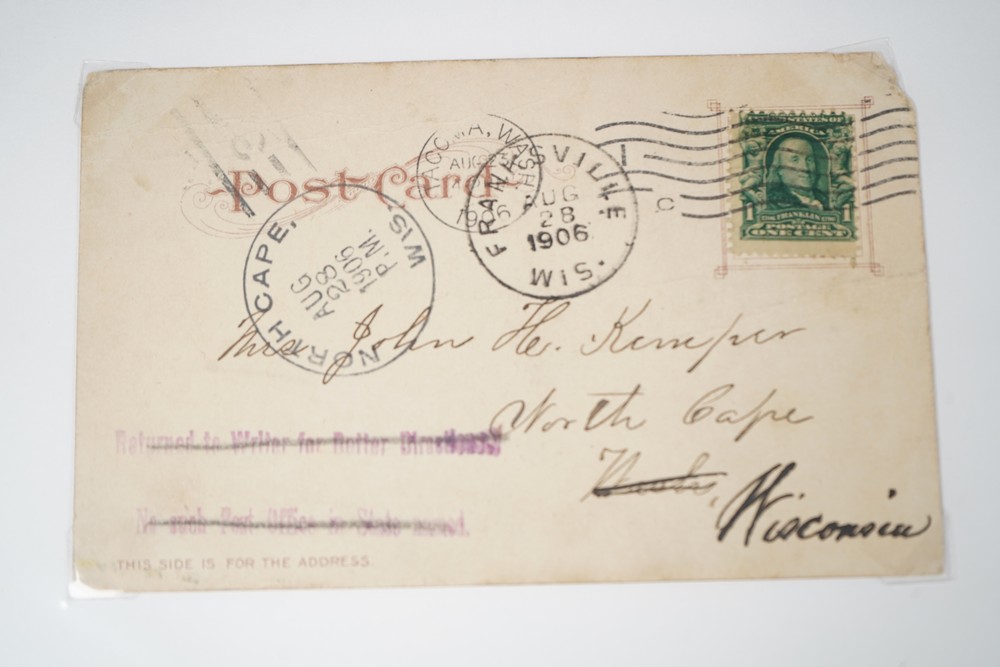 Post Card
TACOMA, WASH
AUG 2
1906
FRANKSVILLE, WIS.
AUG
28
1906
C
UNITED STATES OF
AMERICA
1 FRANKLIN 1
POSTAGE
ONE CENT
NORTH CAPE, WIS.
AUG
28
1906
P.M.
John H. Kemper
North Cape
Wisconsin
Returned to Writer for Better Direction
No such Post Office in State named.
THIS SIDE IS FOR THE ADDRESS.